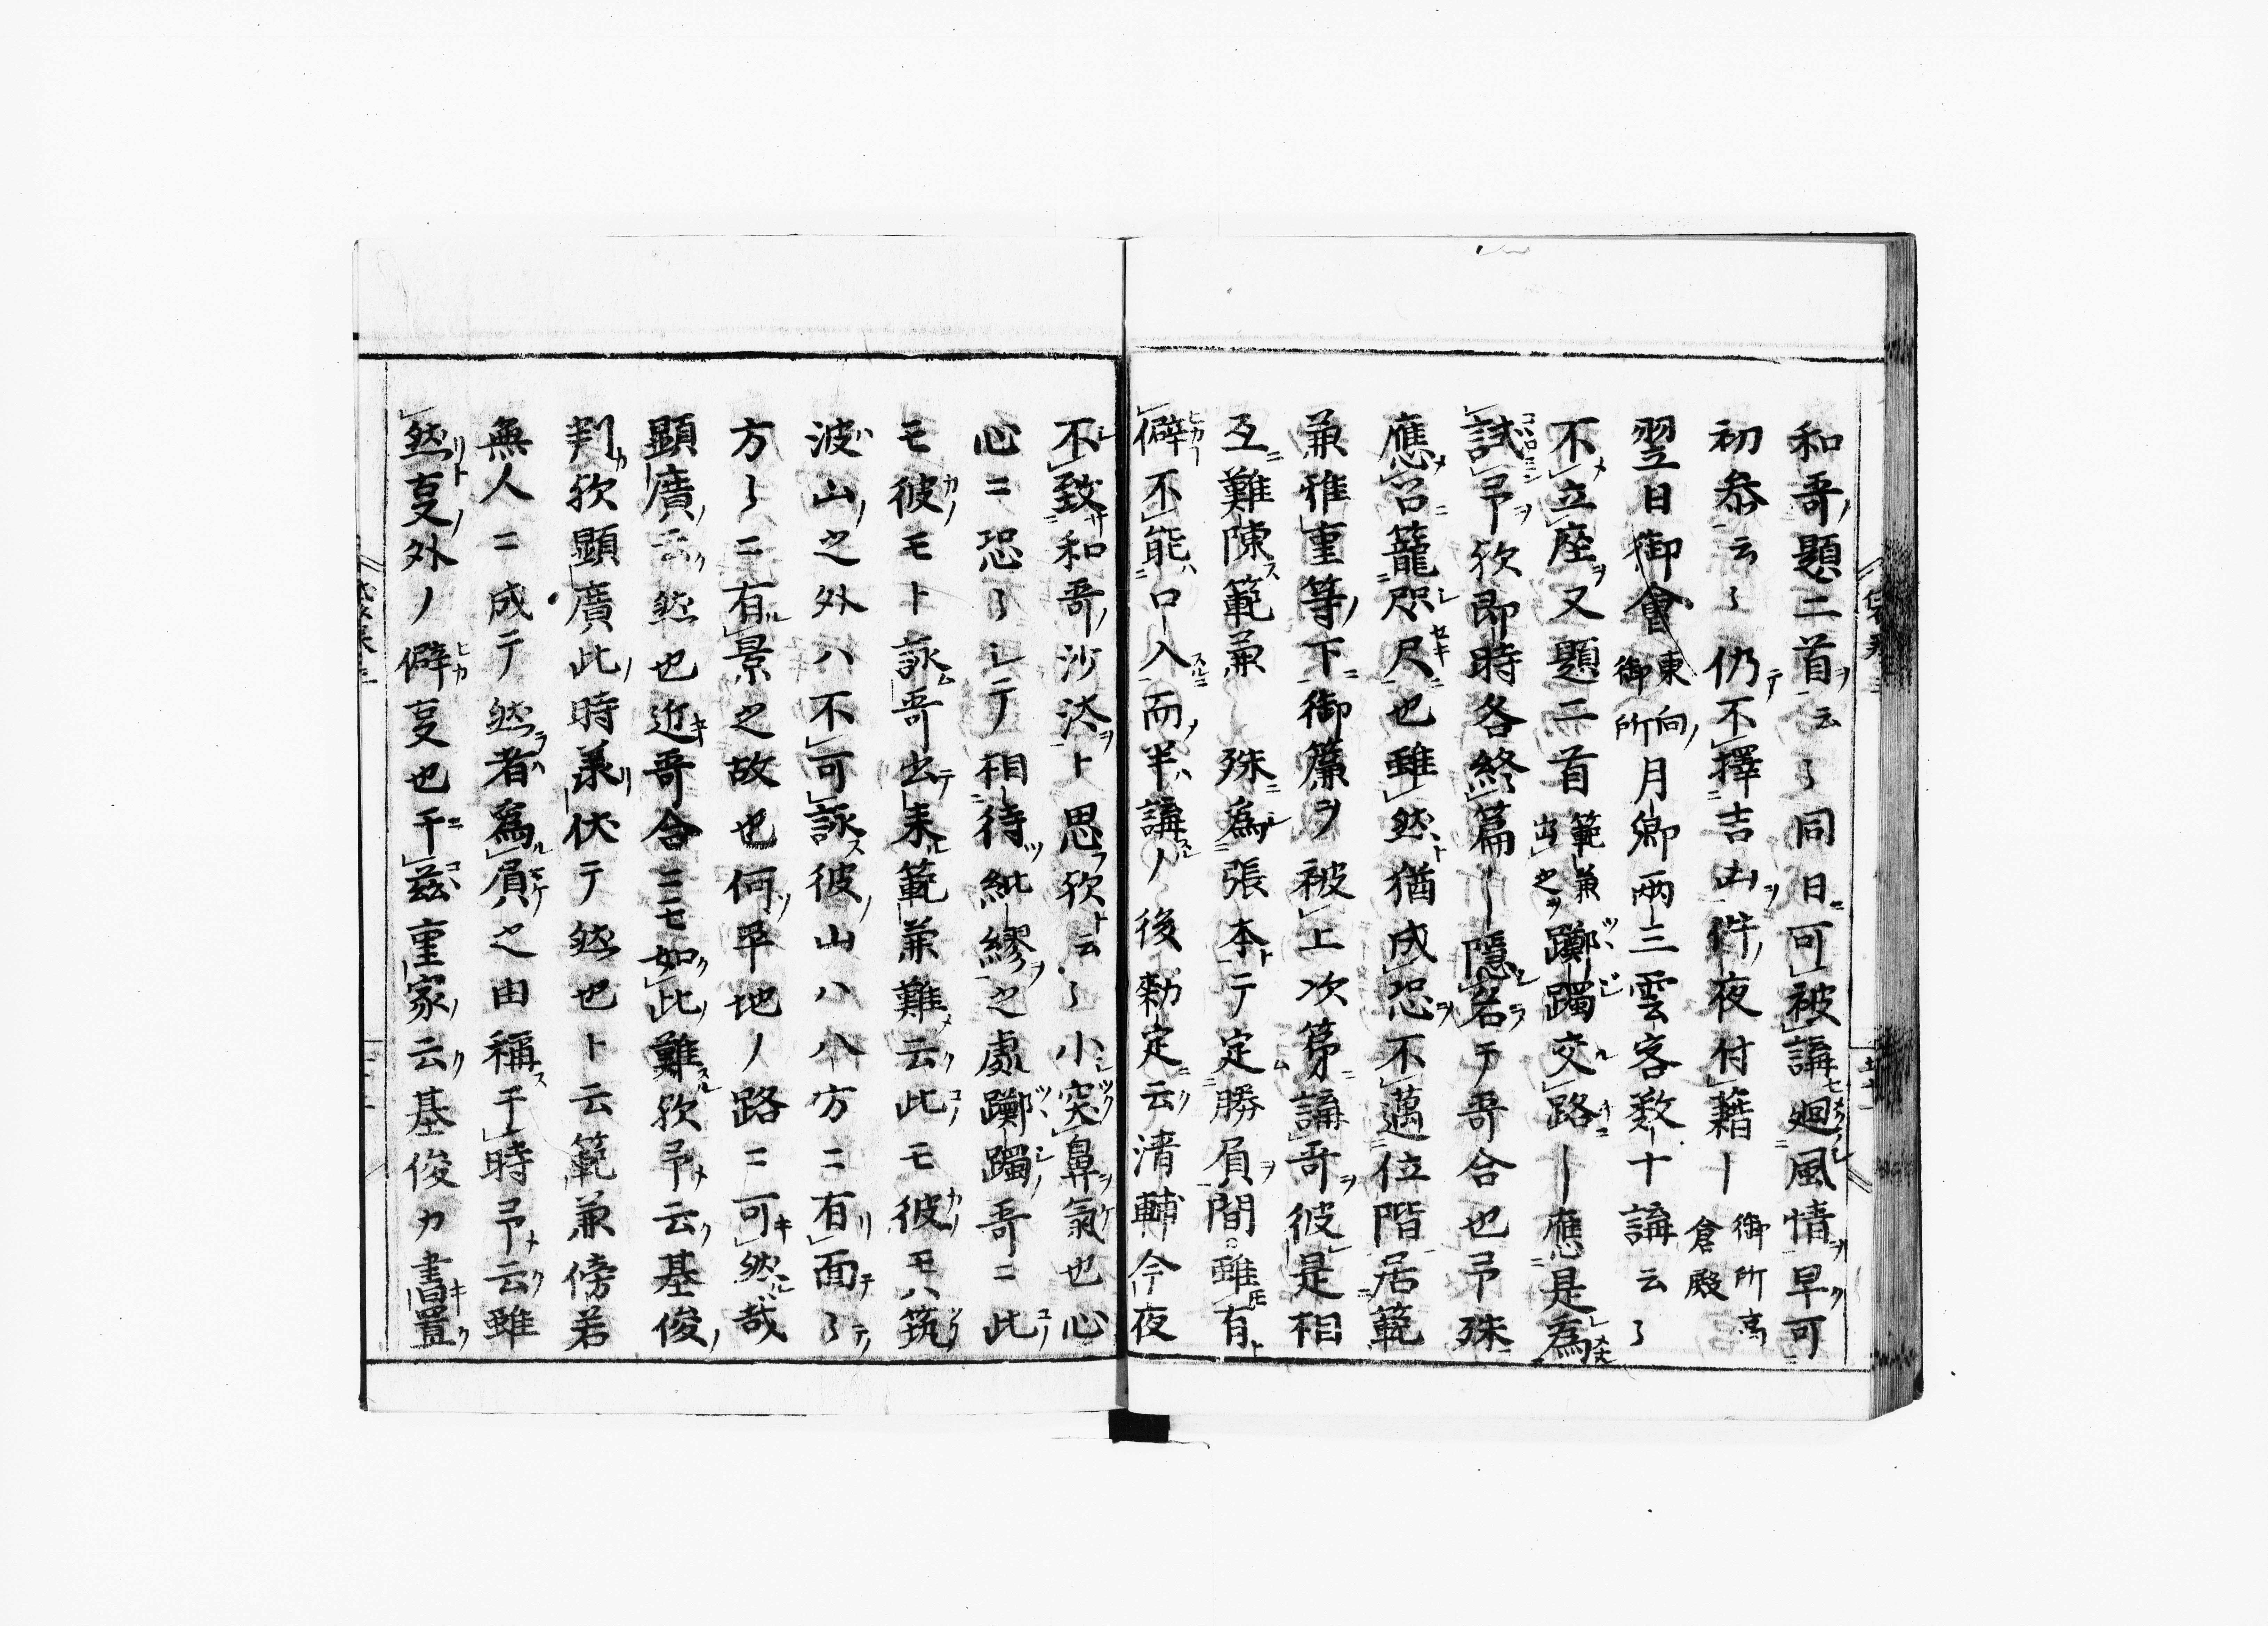 和哥題二首云〻同日可被講廻風情早可
初参云〻仍不擇吉凶件夜付籍御所高倉殿
翌日御會東向御所月卿兩三雲客数十講云〻
不立座又題二首範兼出之躑躅交路應是為
試予欤即時各終篇隠名テ哥合也予殊
應召籠咫尺也雖然猶成恐不邁位階居範
兼雅重等下御簾ヲ被上次第講哥彼是相
互難陳範兼殊為張本テ定勝負間雖有
僻不能口入而半講ノ後勅定云清輔今夜
不致和哥沙汰ト思欤云〻小突鼻氣也心
心ニ恐〻レテ相待紕繆之處躑躅哥ニ此
モ彼モト詠哥出来範兼難云此モ彼モハ筑
波山之外ハ不可詠彼山ハ八方ニ有面〻
方〻ニ有景之故也何平地ノ路ニ可然哉
顕廣云然也近哥合ニモ如此難欤予云基俊
判欤顕廣此時承伏テ然也ト云範兼傍若
無人ニ成テ然者為負之由稱于時予云雖
然叓外ノ僻叓也于茲重家云基俊カ書置